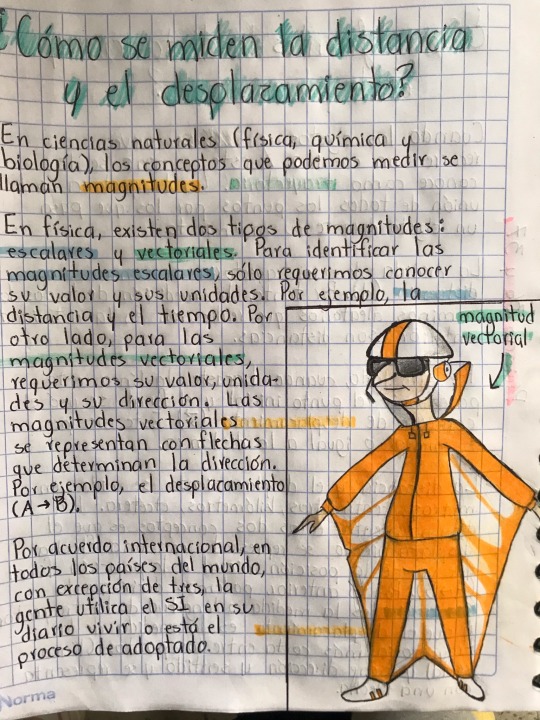 ¿Cómo se miden la distancia
y el desplazamiento?
En ciencias naturales (física, química y
biología), los conceptos que podemos medir se
llaman magnitudes.
En física, existen dos tipos de magnitudes:
escalares y vectoriales. Para identificar las
magnitudes escalares, sólo requerimos conocer
su valor y sus unidades. Por ejemplo, la
distancia y el tiempo. Por
otro lado, para las
magnitudes vectoriales,
requerimos su valor, unida-
des y su dirección. Las
magnitudes vectoriales
se representan con flechas
que determinan la dirección.
Por ejemplo, el desplacamiento
(A→B).
magnitud
vectorial
Por acuerdo internacional, en
todos los países del mundo,
con excepción de tres, la
gente utiliza el SI en su
diario vivir o está el
proceso de adoptado.
Norma